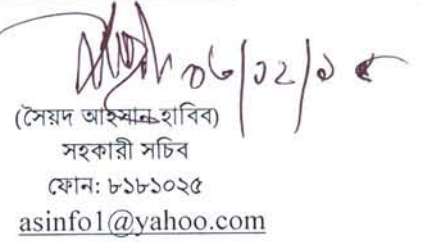 ০৬/১২/১৫
(সৈয়দ আহসান হাবিব)
সহকারী সচিব
ফোন: ৮১৮১০২৫
asinfo1@yahoo.com